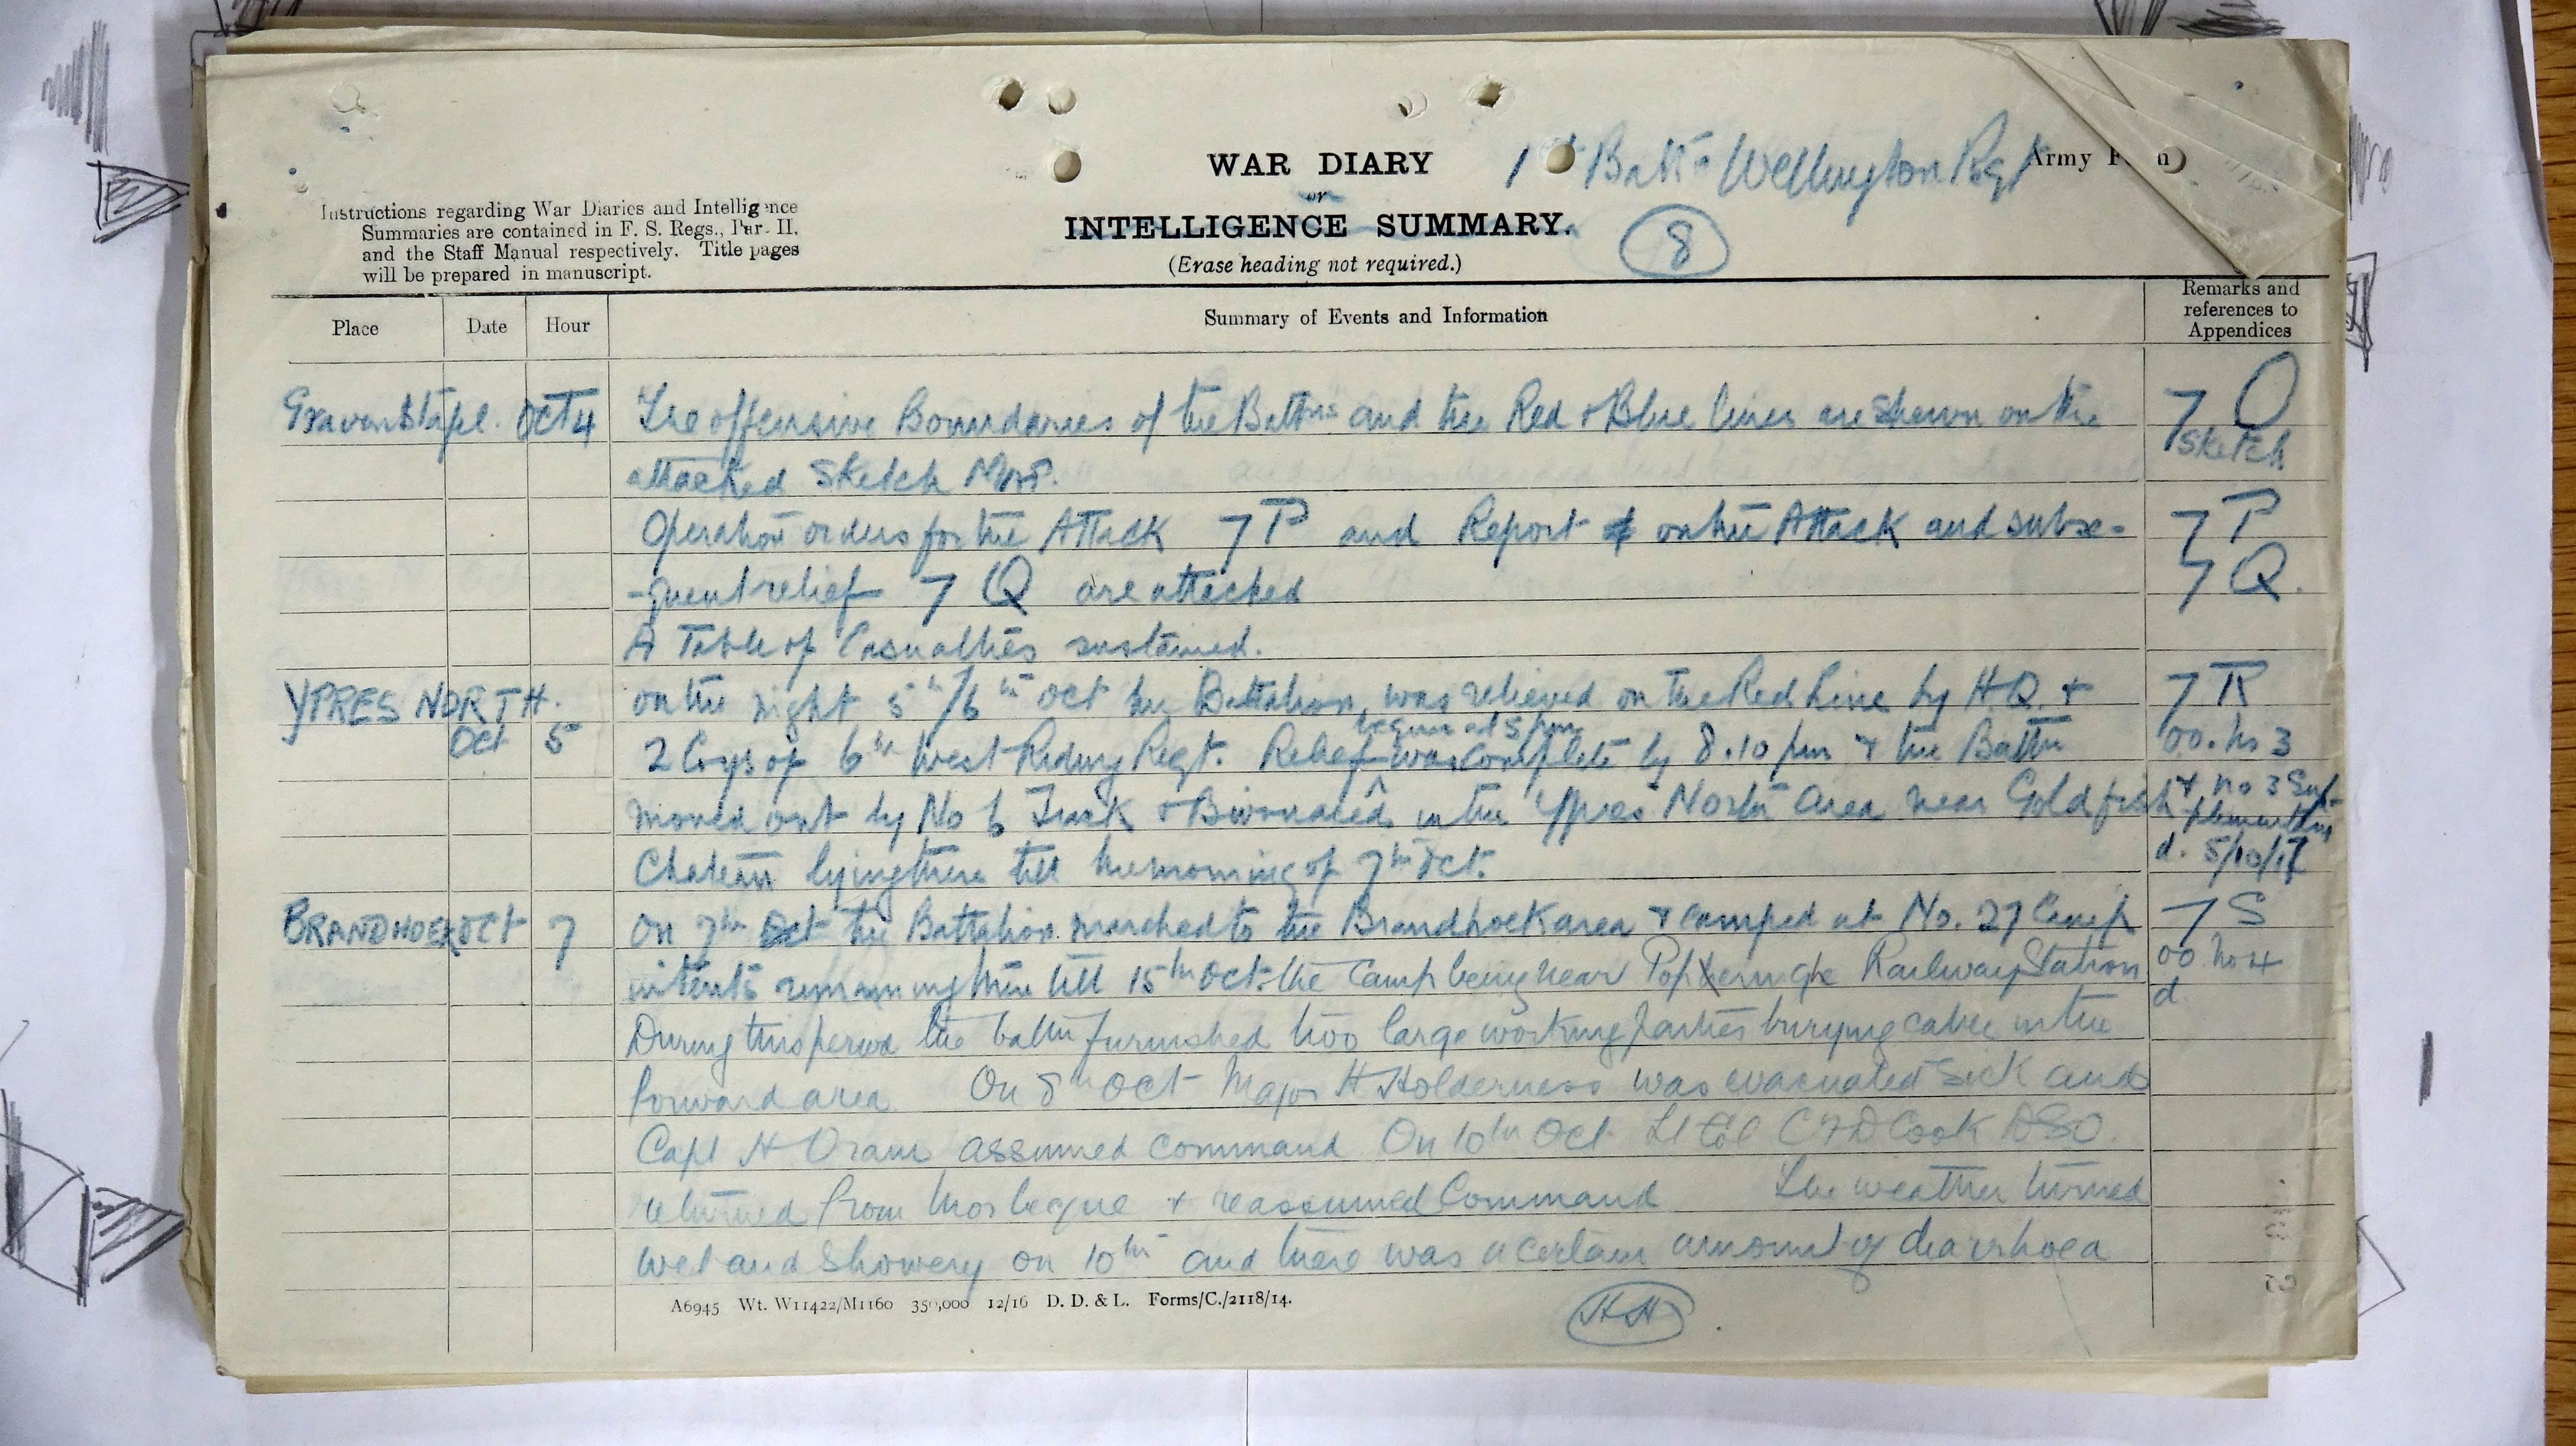 WAR DIARY
or
INTELLIGENCE SUMMARY.
(Erase heading not required.)
1st Battn Wellington Regt
Army F
8
Instructions regarding War Diaries and Intelligence
Summaries are contained in F. S. Regs., Part II,
and the Staff Manual respectively. Title pages
will be prepared in manuscript.
Place Date Hour Summary of Events and Information Remarks and references to Appendices
Gravenstafel. Oct 4 The offensive Boundaries of the Battns and the Red & Blue lines are shewn on the 7 O
attached Sketch Map. Sketch
Operation orders for the Attack 7 P and Report on the Attack and subse- 7 P
-quent relief 7 Q are attached 7 Q.
A Table of Casualties sustained.
YPRES NORTH. on the night 5th/6th Oct the Battalion was relieved on the Red Line by H.Q. & 7 R
begun at 5 pm
Oct 5 2 Coys of 6th West Riding Regt. Relief was complete by 8.10 pm & the Battn OO. No 3
moved out by No 6 Track & Bivouaced in the Ypres North Area near Goldfish & No 3 Sup-
plementary
Chateau lying there till the morning of 7th Oct. d. 5/10/17
BRANDHOEK Oct 7 On 7th Oct the Battalion marched to the Brandhoek area & camped at No. 27 Camp 7 S
in tents remaining there till 15th Oct. the Camp being near Poperinghe Railway Station OO No 4
d
During this period the battn furnished two large working parties burying cable in the
forward area On 8th Oct Major H Holderness was evacuated sick and
Capt H Oram assumed command On 10th Oct Lt Col C F D Cook DSO.
returned from Morbeque & reassumed Command The weather turned
wet and showery on 10th and there was a certain amount of diarrhoea
A6945 Wt. W11422/M1160 350,000 12/16 D. D. & L. Forms/C./2118/14.
HH